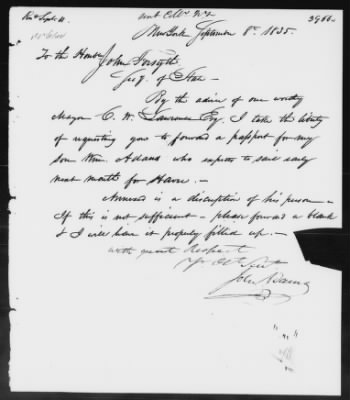 Recd Sept. 11.
3986.
New York September 8th. 1835.
To the Honble John Forsyth
Secy of State —
By the advice of our worthy
Mayor C. W. Lawrence Esq. I take the liberty
of requesting you to forward a passport for my
son Thom. Adams who expects to sail early
next month for Havre. —
Annexed is a discription of his person —
If this is not sufficient — please forward a blank
& I will have it properly filled up. —
with great Respect
Yr. Obt Sert
John Adams